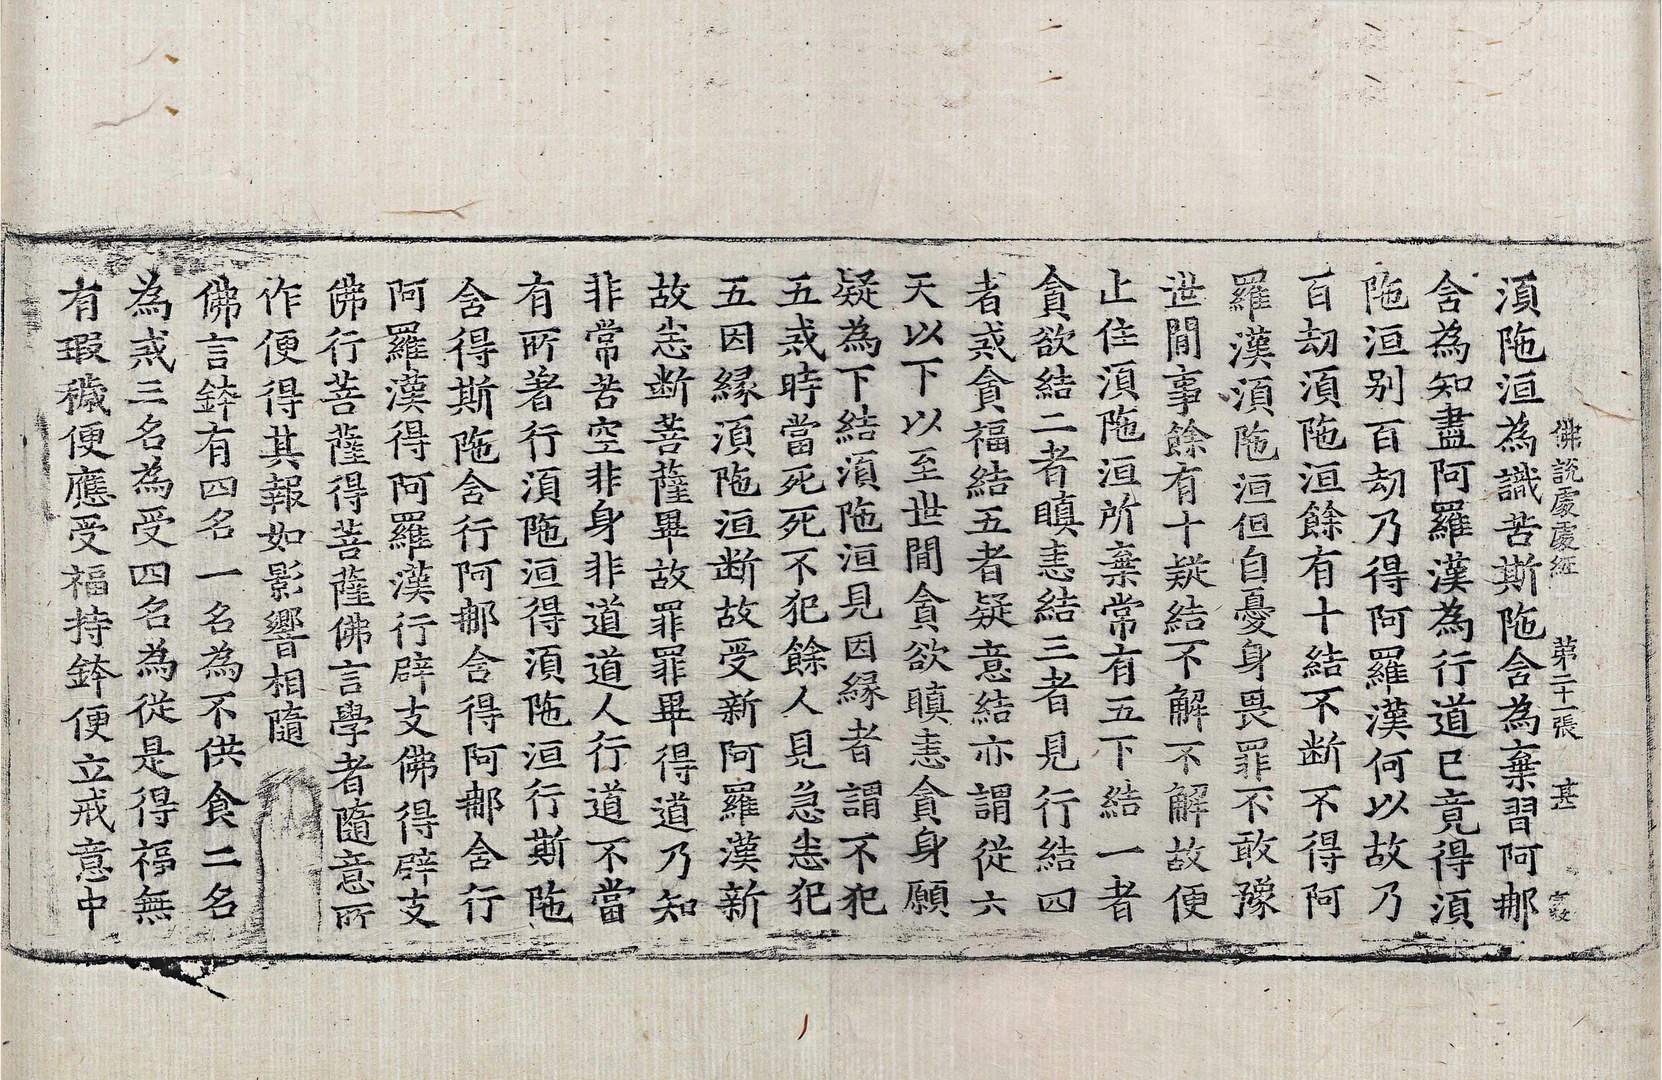 佛説處處經 第二十一張 甚
須陁洹為識苦斯陁含為棄習阿那
含為知盡阿羅漢為行道已竟得須
陁洹别百劫乃得阿羅漢何以故乃
百劫須陁洹餘有十結不断不得阿
羅漢須陁洹但自憂身畏罪不敢豫
世間事餘有十疑結不解不解故便
止住須陁洹所棄常有五下結一者
貪欲結二者瞋恚結三者見行結四
者惑貪福結五者疑意結亦謂從六
天以下以至世間貪欲瞋恚貪身願
疑為下結須陁洹見因緣者謂不犯
五惑時當死死不犯餘人見急恚犯
五因緣須陁洹断故受新阿羅漢新
故恚断菩薩畢故罪罪畢得道乃知
非常苦空非身非道道人行道不當
有所著行須陁洹得須陁洹行斯陁
含得斯陁含行阿那含得阿那含行
阿羅漢得阿羅漢行辟支佛得辟支
佛行菩薩得菩薩佛言學者隨意所
作便得其報如影響相隨
佛言鉢有四名一名為不供食二名
為惑三名為受四名為從是得福無
有瑕穢便應受福持鉢便立戒意中